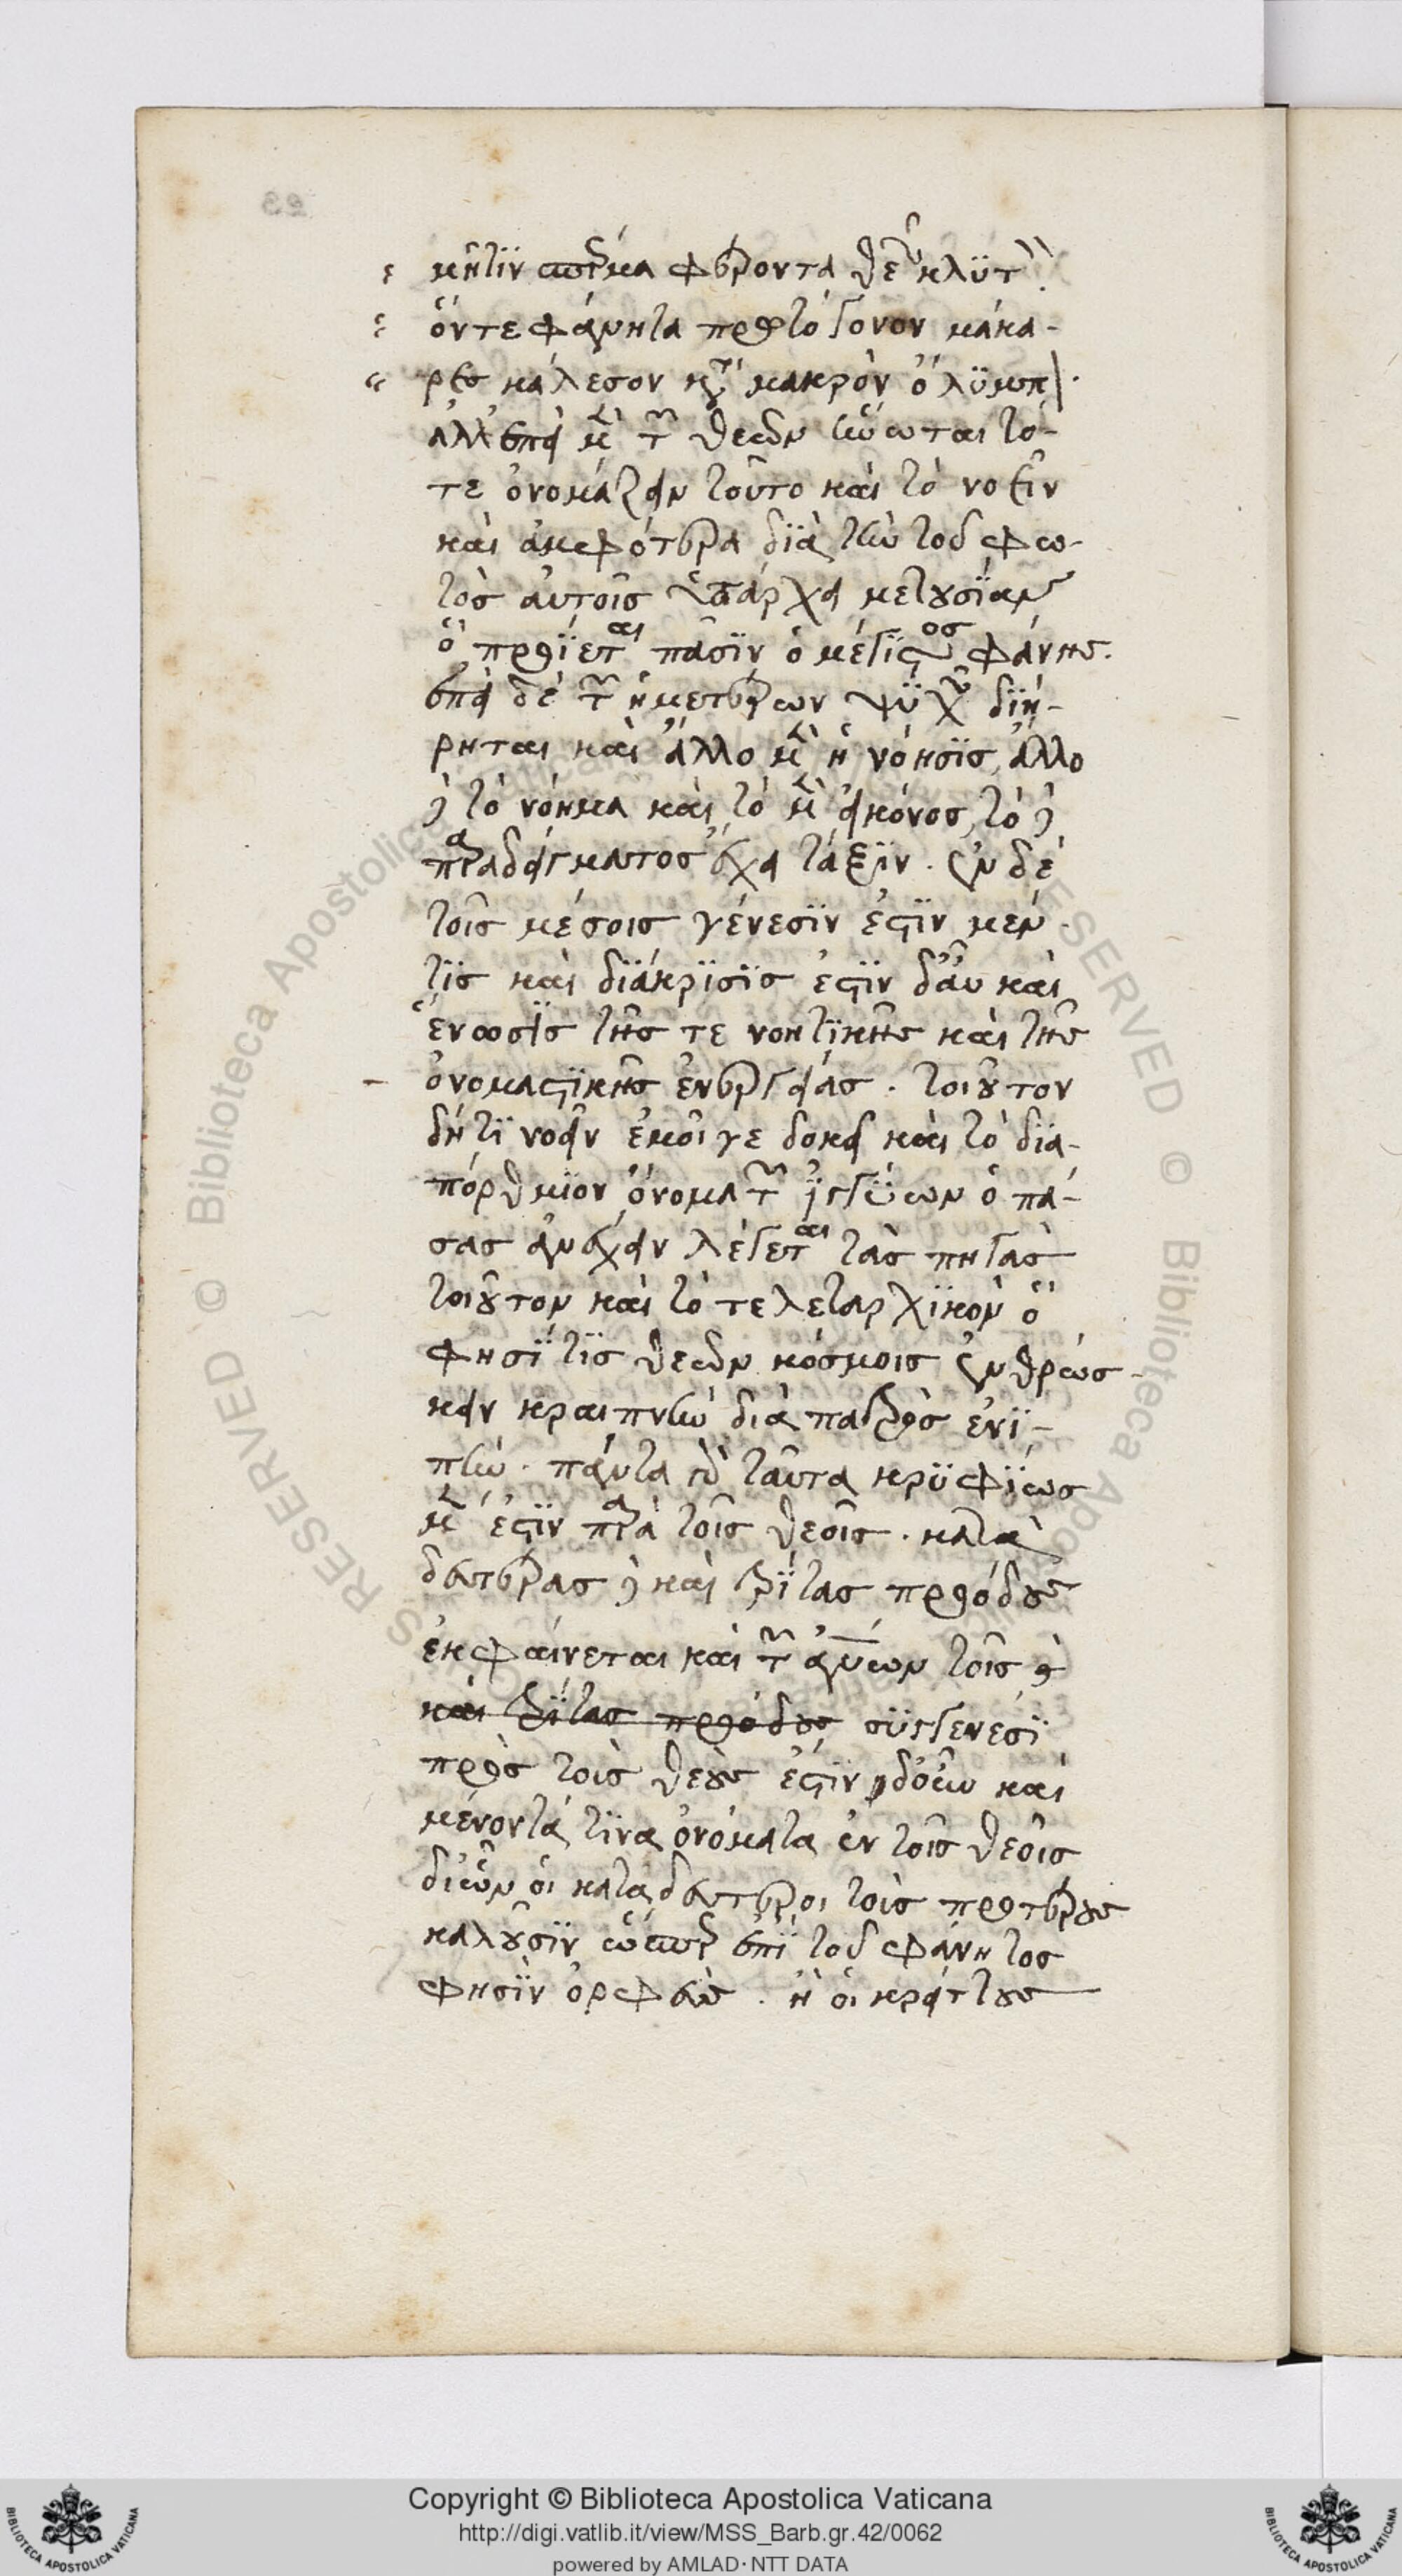 μῆτιν σπέρμα φέροντα θεῶν κλυτ
ὅντε φάνητα πρωτόγονον μάκα-
ρες κάλεσον κατὰ μακρὸν ὄλϋμπ
ἀλλ' ἐπεὶ μὲν τῶν θεῶν ἥνωται τό-
τε ὀνομάζειν τοῦτο καὶ τὸ νοεῖν
καὶ ἀμφότερα διὰ τὴν τοῦ φω-
τὸς αὐτοῖς ὑπάρχει μετουσίαν
ὃ προΐεται πᾶσϊν ὁ μέγιστος φάνης.
ἐπεὶ δὲ τῶν ἡμετέρων ψϋχῶν διή-
ρηται καὶ ἄλλο μὲν ἡ νόησϊς, ἄλλο
δὲ τὸ νόημα καὶ τὸ μὲν εἰκόνος, τὸ δὲ
παραδείγματος ἔχει τάξϊν. ἐν δὲ
τοῖς μέσοις γένεσϊν ἐστϊν μέν
τϊς καὶ διάκρϊσϊς ἐστϊν δ' αὖ καὶ
ἕνωσϊς τῆς τε νοητϊκῆς καὶ τῆς
ὀνομαστϊκῆς ἐνεργείας. τοιοῦτον
δή τϊ νοεῖν ἔμοιγε δοκεῖ καὶ τὸ δια-
πόρθμϊον ὄνομα τῶν ἰϋγγων ὁ πά-
σας ἀνέχειν λέγεται τὰς πηγὰς
τοιοῦτον καὶ τὸ τελεταρχϊκὸν ὅ
φησί τϊς θεῶν κόσμοις ἐνθρώσ-
κειν κραιπνὴν διὰ πατρὸς ἐνϊ-
πὴν. πάντα γὰρ ταῦτα κρϋφϊως
μὲν ἐστϊν παρὰ τοῖς θεοῖς. κατὰ
δευτέρας δὲ καὶ τρίτας προόδους
ἐκφαίνεται καὶ τῶν ἀνων τοῖς δὲ
καὶ τρίτας προόδους σϋγγενέσϊ
πρὸς τοὺς θεοὺς ἐστϊν, δ' οὖν καὶ
μένοντά τϊνα ὀνόματα ἐν τοῖς θεοῖς
δι' ὧν οἱ καταδεύτεροι τοὺς προτέρους
καλοῦσϊν ὥσπερ ἐπὶ τοῦ φάνητος
φησϊν ὀρφεύς. ἢ οἱ κρείττους